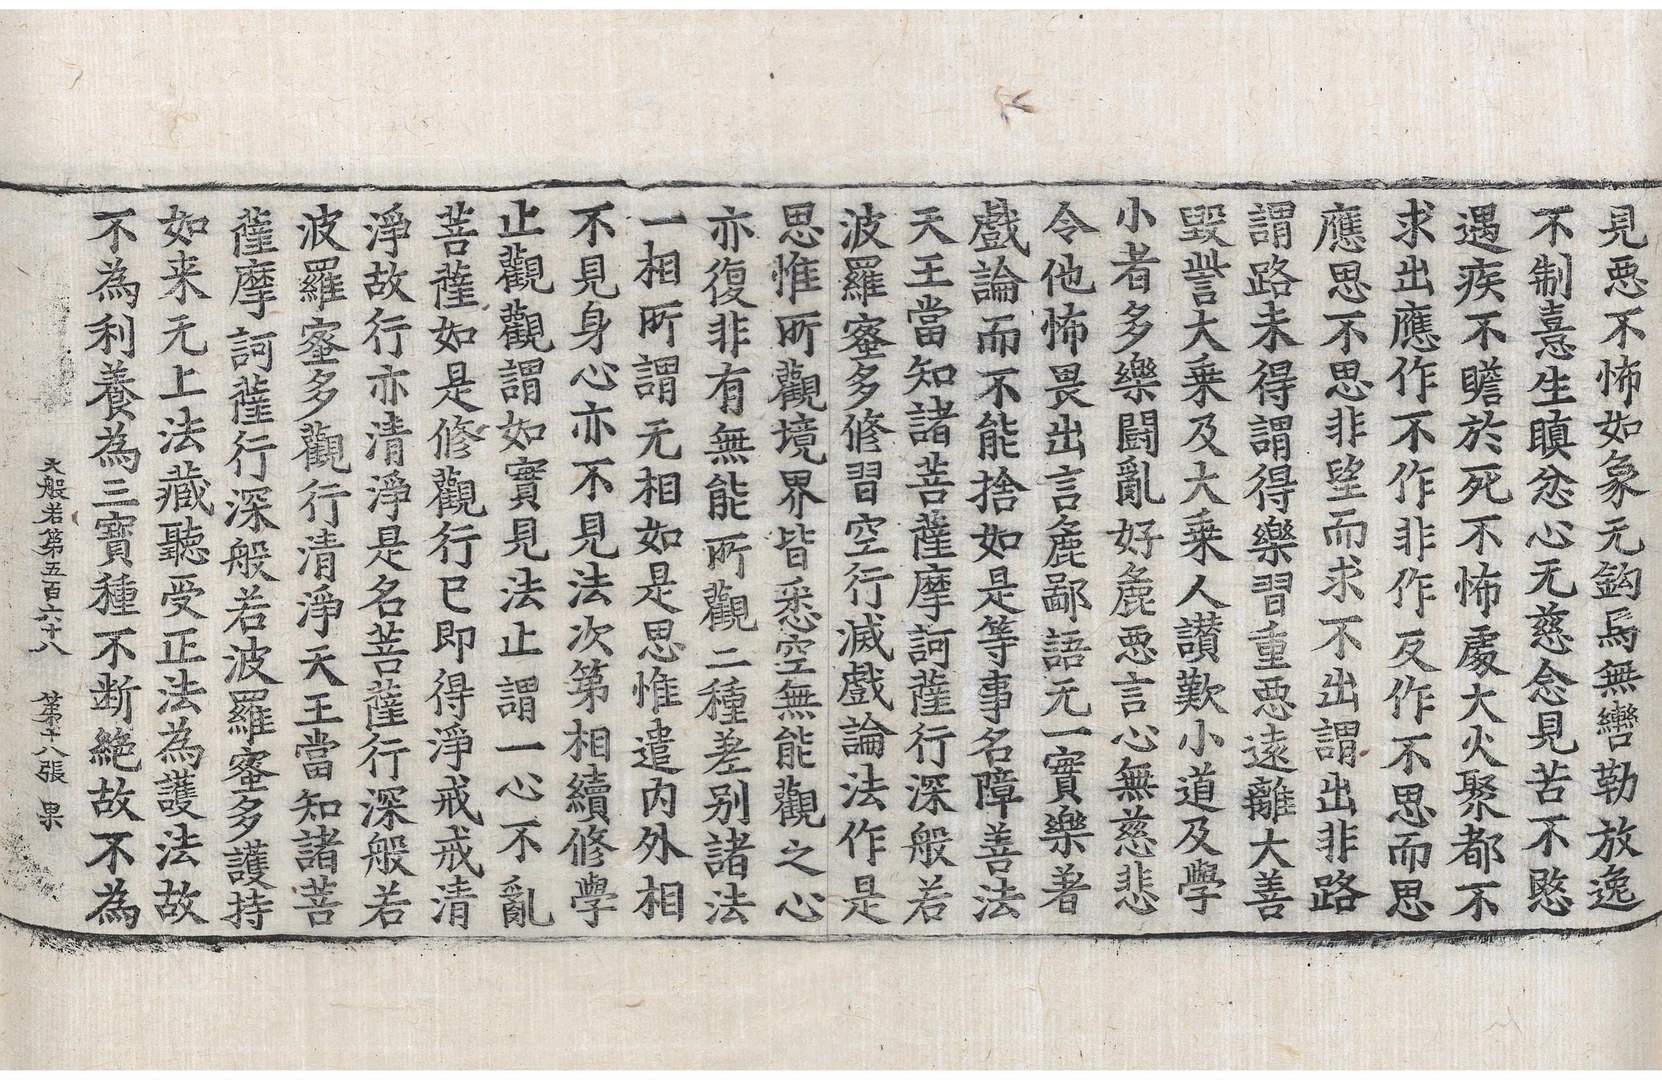 見惡不怖如象无鉤馬無轡勒放逸
不制憙生瞋忿心无慈念見苦不愍
遇疾不瞻於死不怖處大火聚都不
求出應作不作非作反作不思而思
應思不思非望而求不出謂出非路
謂路未得謂得樂習重惡遠離大善
毀訾大乗及大乗人讃歎小道及學
小者多樂鬪亂好麁惡言心無慈悲
令他怖畏出言麁鄙語无一實樂著
戲論而不能捨如是等事名障善法
天王當知諸菩薩摩訶薩行深般若
波羅蜜多修習空行滅戲論法作是
思惟所觀境界皆悉空無能觀之心
亦復非有無能所觀二種差别諸法
一相所謂无相如是思惟遣内外相
不見身心亦不見法次第相續修學
止觀觀謂如實見法止謂一心不亂
菩薩如是修觀行已即得淨戒戒清
淨故行亦清淨是名菩薩行深般若
波羅蜜多觀行清淨天王當知諸菩
薩摩訶薩行深般若波羅蜜多護持
如来无上法藏聽受正法為護法故
不為利養為三寶種不断絶故不為
大般若第五百六十八 第十八張 果